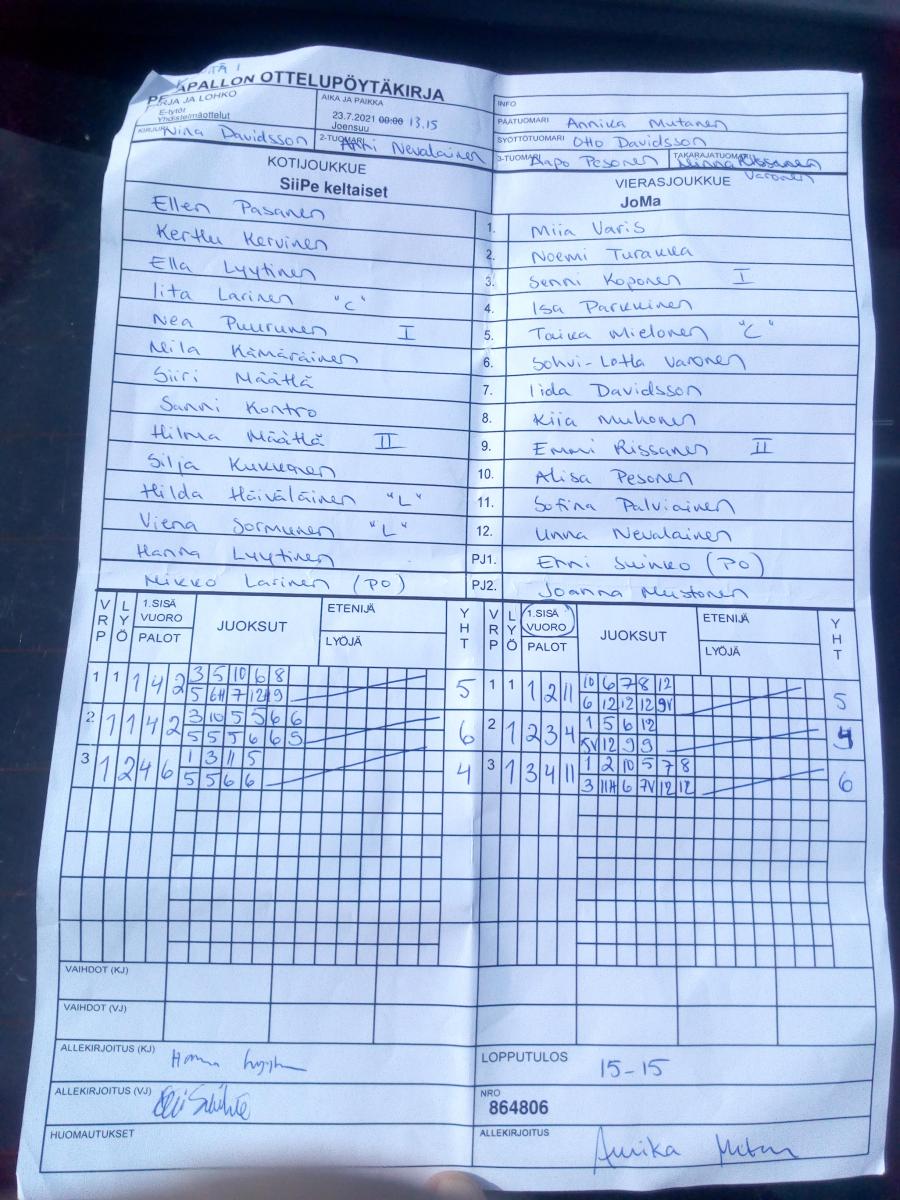 PESÄPALLON OTTELUPÖYTÄKIRJA
SARJA JA LOHKO
E-tytöt
Yhdistelmäottelut
AIKA JA PAIKKA
23.7.2021 00:00 13.15
Joensuu
INFO
PÄÄTUOMARI Annika Mutanen
KIRJURI Nina Davidsson
2-TUOMARI Antti Nevalainen
SYÖTTÖTUOMARI Otto Davidsson
3-TUOMARI Aapo Pesonen
TAKARAJATUOMARI Minna Rissanen
Varonen
KOTIJOUKKUE
SiiPe keltaiset
VIERASJOUKKUE
JoMa
Ellen Pasanen 1. Miia Varis
Kerttu Kervinen 2. Noemi Turakka
Ella Lyytinen 3. Senni Koponen I
Iita Larinen "C" 4. Isa Parkkinen
Nea Puurunen I 5. Taika Mielonen "C"
Neila Kämäräinen 6. Sohvi-Lotta Varonen
Siiri Määttä 7. Iida Davidsson
Sanni Kontro 8. Kiia Muhonen
Hilma Määttä II 9. Emmi Rissanen II
Silja Kukkonen 10. Alisa Pesonen
Hilda Häiväläinen "L" 11. Sofina Palviainen
Viena Sormunen "L" 12. Unna Nevalainen
Hanna Lyytinen PJ1. Enni Suikko (PO)
Mikko Larinen (PO) PJ2. Joanna Mustonen
VRP LYÖ 1.SISÄ VUORO PALOT JUOKSUT ETENIJÄ LYÖJÄ YHT
VRP LYÖ 1.SISÄ VUORO PALOT JUOKSUT ETENIJÄ LYÖJÄ YHT
1 1 1 4 2 3 5 10 6 8 5
5 6H 7 12H 9
1 1 1 2 11 10 6 7 8 12 5
6 12 12 12 9V
2 1 1 4 2 3 10 5 5 6 6 6
5 5 5 6 6 9
2 1 2 3 4 1 5 6 12 4
5V 12 9 9
3 1 2 4 6 1 3 11 5 4
5 5 6 6
3 1 3 4 11 1 2 10 5 7 8 6
3 11H 6 7V 12 12
VAIHDOT (KJ)
VAIHDOT (VJ)
ALLEKIRJOITUS (KJ)
LOPPUTULOS 15-15
ALLEKIRJOITUS (VJ)
NRO
864806
HUOMAUTUKSET
ALLEKIRJOITUS Annika